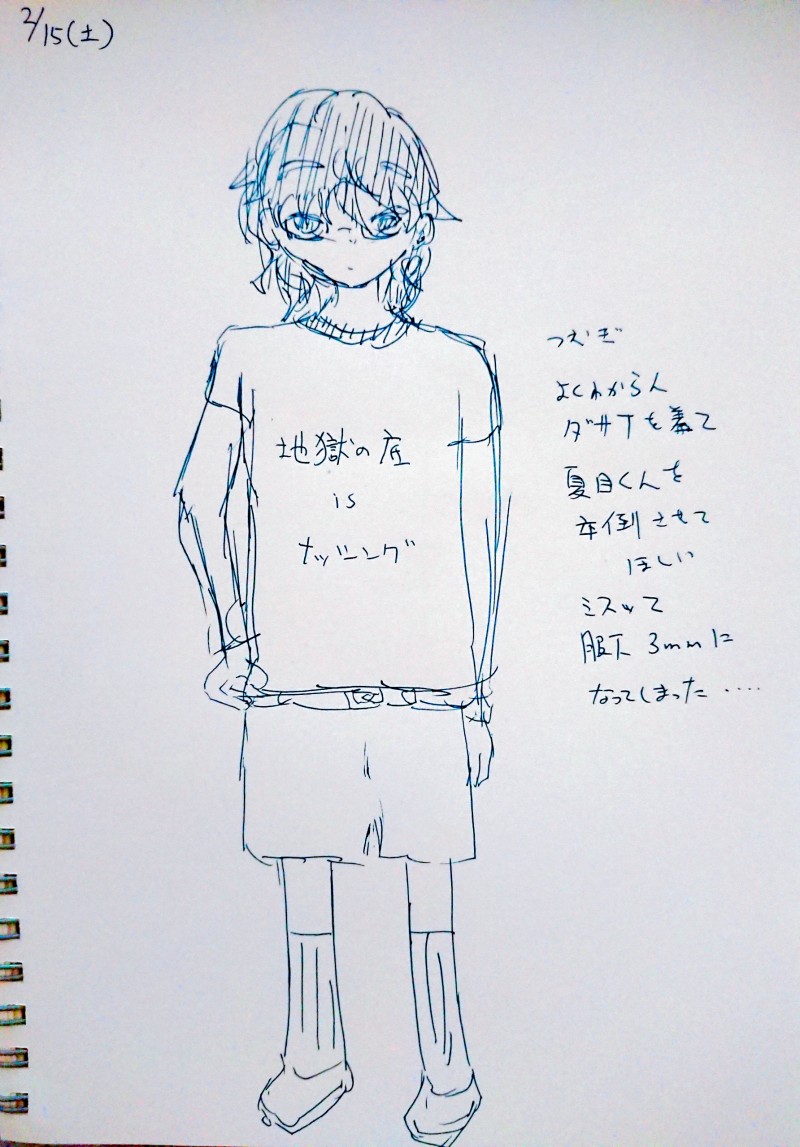 2/15(土)
地獄の底
is
ナッシング
つむぎ
よくわからん
ダサTを着て
夏目くんを
卒倒させて
ほしい
ミスって
股下3mmに
なってしまった....